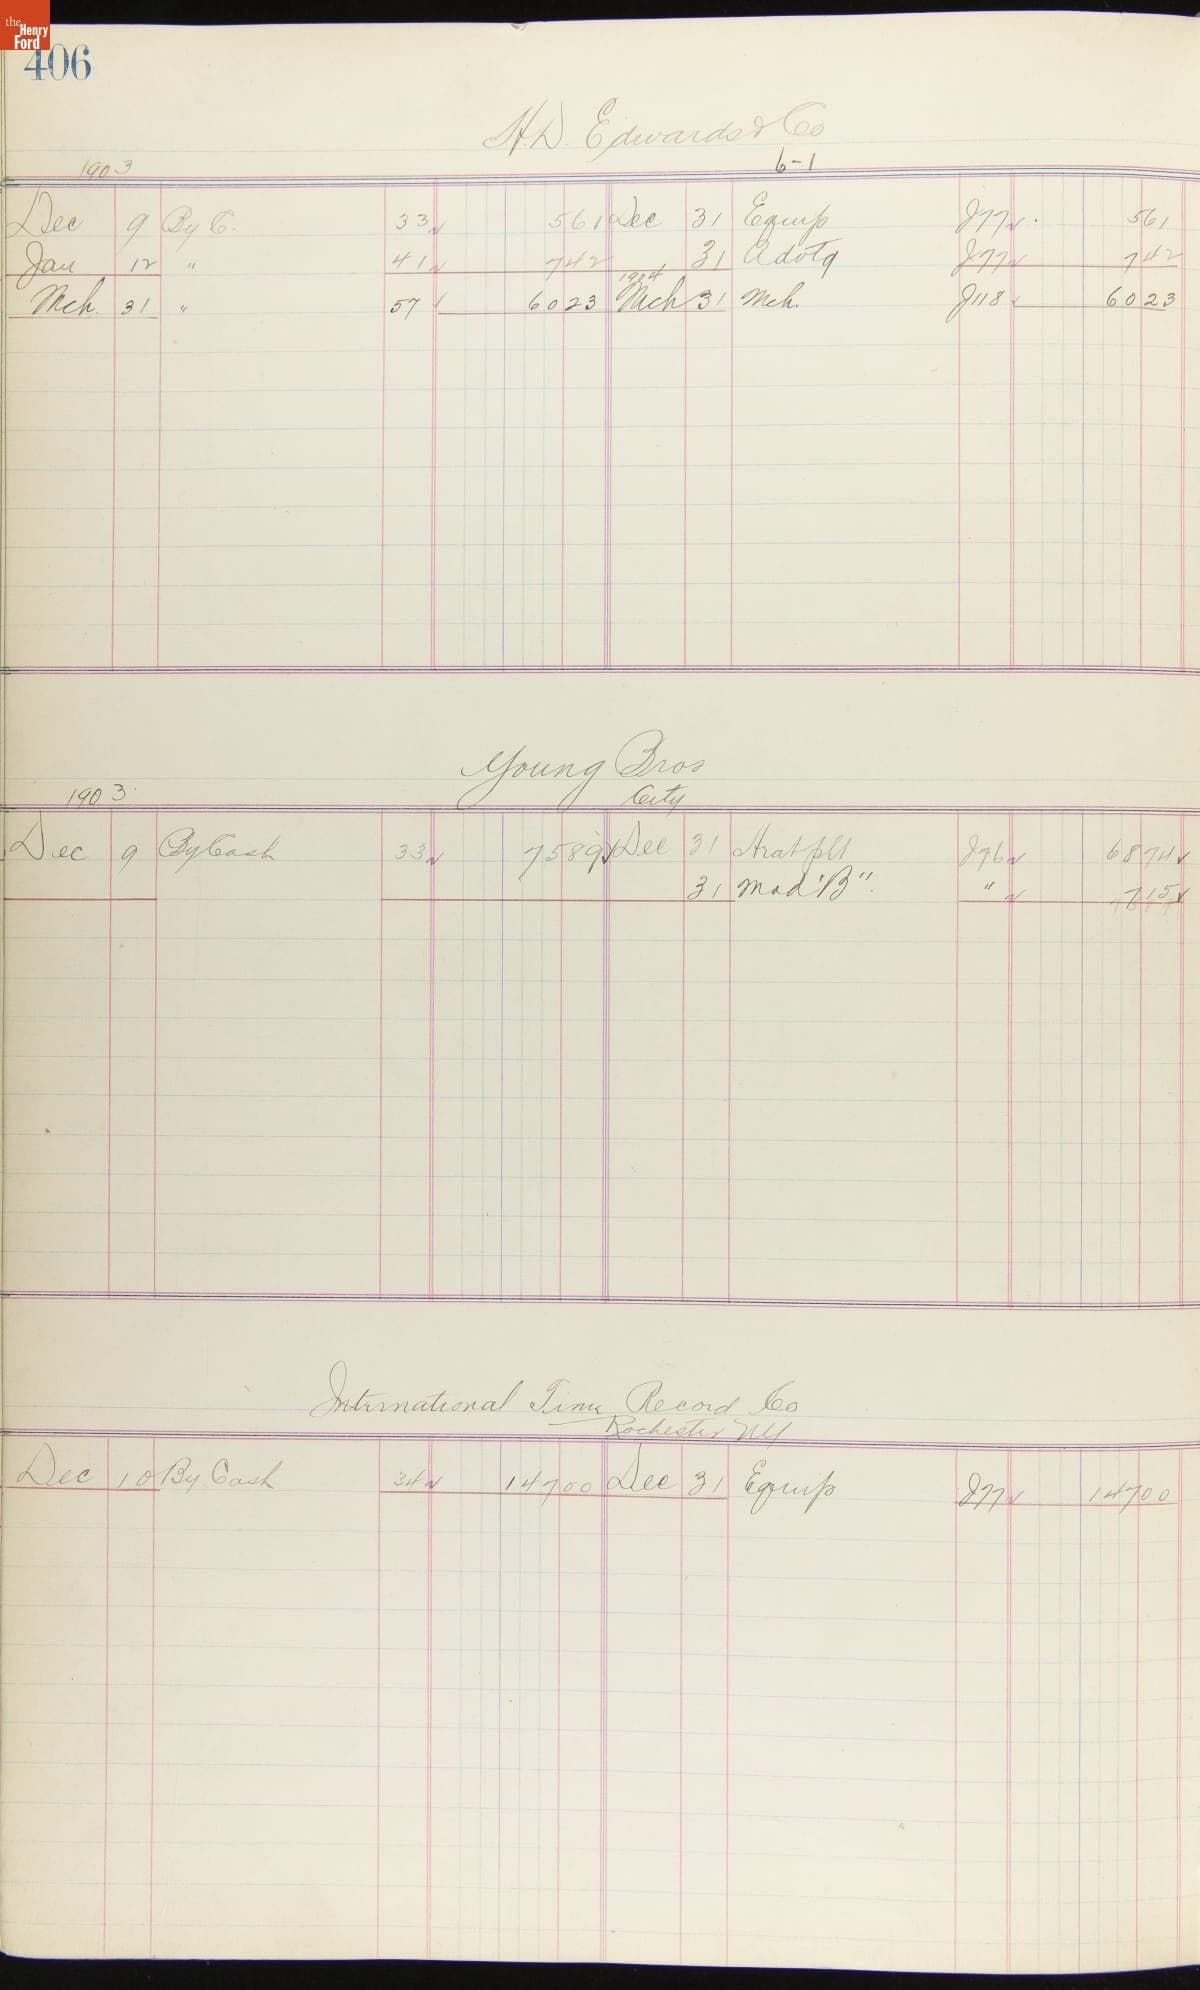 the Henry Ford
406
H.D. Edwards & Co
6-1
1903
Dec 9 By C. 33 561 Dec 31 Equip J77 561
Jan 12 " 41 742 31 Advtg J77 742
1904
Mch. 31 " 57 6023 Mch 31 Mch. J118 6023
Young Bros
City
1903
Dec 9 By Cash 33 7589 Dec 31 Heat plt J76 6874
31 Mod "B". " 715
International Time Record Co
Rochester NY
Dec 10 By Cash 34 14700 Dec 31 Equip J77 14700